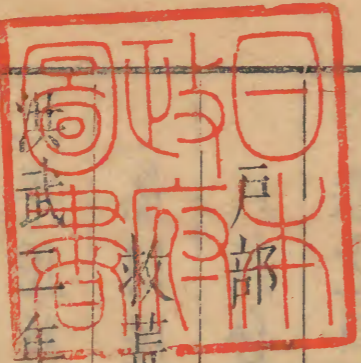 日本
政府
圖書
戶部
救荒
洪武二年